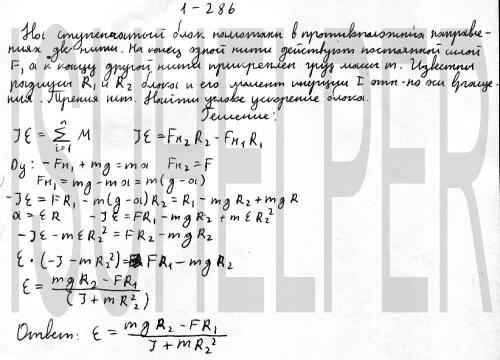 1-286
На ступенчатый блок намотаны в противоположных направле-
ниях две нити. На конец одной нити действуют постоянной силой
F, а к концу другой нити прикреплен груз массы m. Известны
радиусы R₁ и R₂ блока и его момент инерции I отн-но оси враще-
ния. Трения нет. Найти угловое ускорение блока.
Решение:
Jε = Σⁿᵢ₌₁ M Jε = Fн₂R₂ - Fн₁R₁
Oy: -Fн₁ + mg = ma Fн₂ = F
Fн₁ = mg - ma = m(g-a)
-Jε = FR₁ - m(g-a)R₂ = R₁ - mgR₂ + mgR
a = εR -Jε = FR₁ - mgR₂ + mεR₂²
-Jε - mεR₂² = FR₂ - mgR₂
ε·(-J - mR₂²) = FR₁ - mgR₂
ε = mgR₂ - FR₁ / (J + mR₂²)
Ответ: ε = mgR₂ - FR₁ / J + mR₂²
ISUHELPER